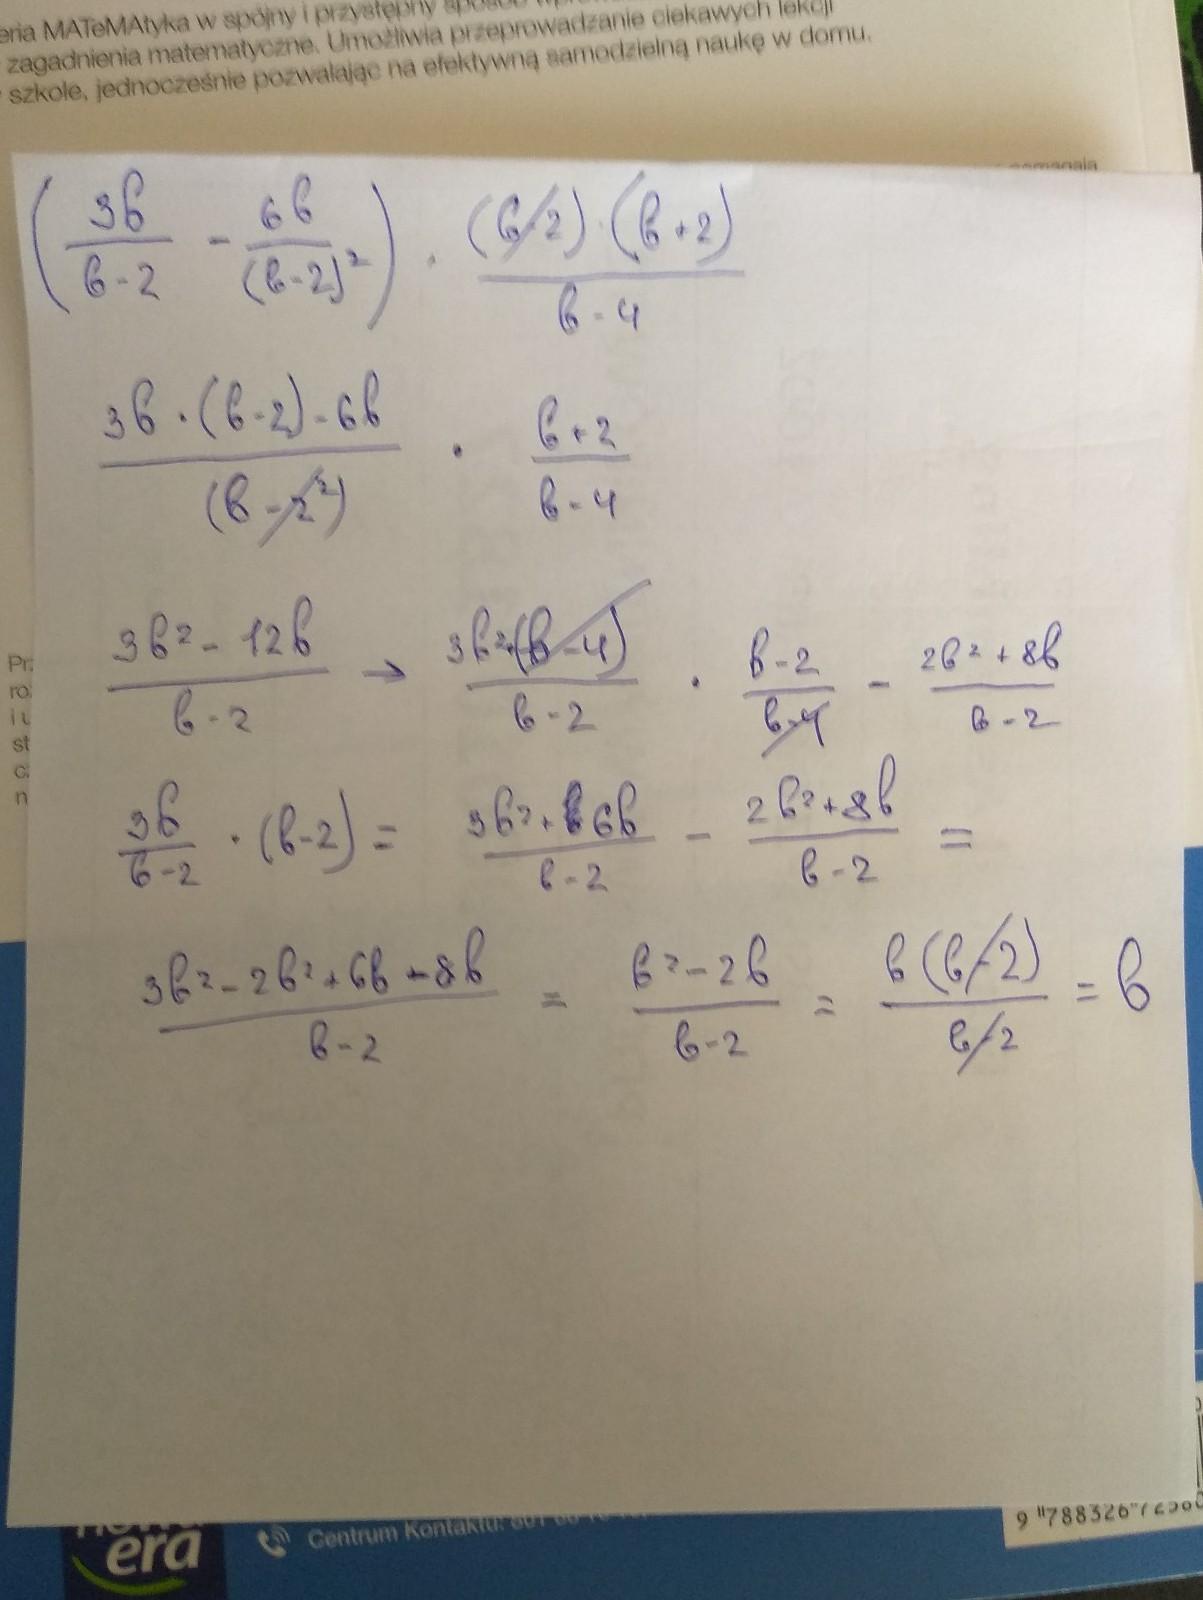 MATeMAtyka w spójny i przystępny sposób
zagadnienia matematyczne. Umożliwia przeprowadzanie ciekawych lekcji
szkole, jednocześnie pozwalając na efektywną samodzielną naukę w domu.
(3b/(b-2) - 6b/(b-2)²) · (b-2)·(b+2)/(b-4)
(3b·(b-2)-6b)/(b-2²) · (b+2)/(b-4)
(3b²-12b)/(b-2) → 3b²·(b-4)/(b-2) · (b-2)/(b-4) - (2b²+8b)/(b-2)
3b/(b-2) · (b-2) = (3b²+6b)/(b-2) - (2b²+8b)/(b-2) =
(3b²-2b²+6b-8b)/(b-2) = (b²-2b)/(b-2) = b(b-2)/(b-2) = b
era
Centrum Kontaktu: